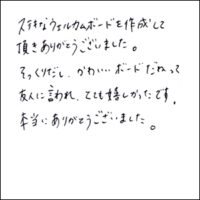 ステキなウェルカムボードを作成して
頂きありがとうございました。
そっくりだし、かわいいボードだねって
友人に言われ、とても嬉しかったです。
本当にありがとうございました。